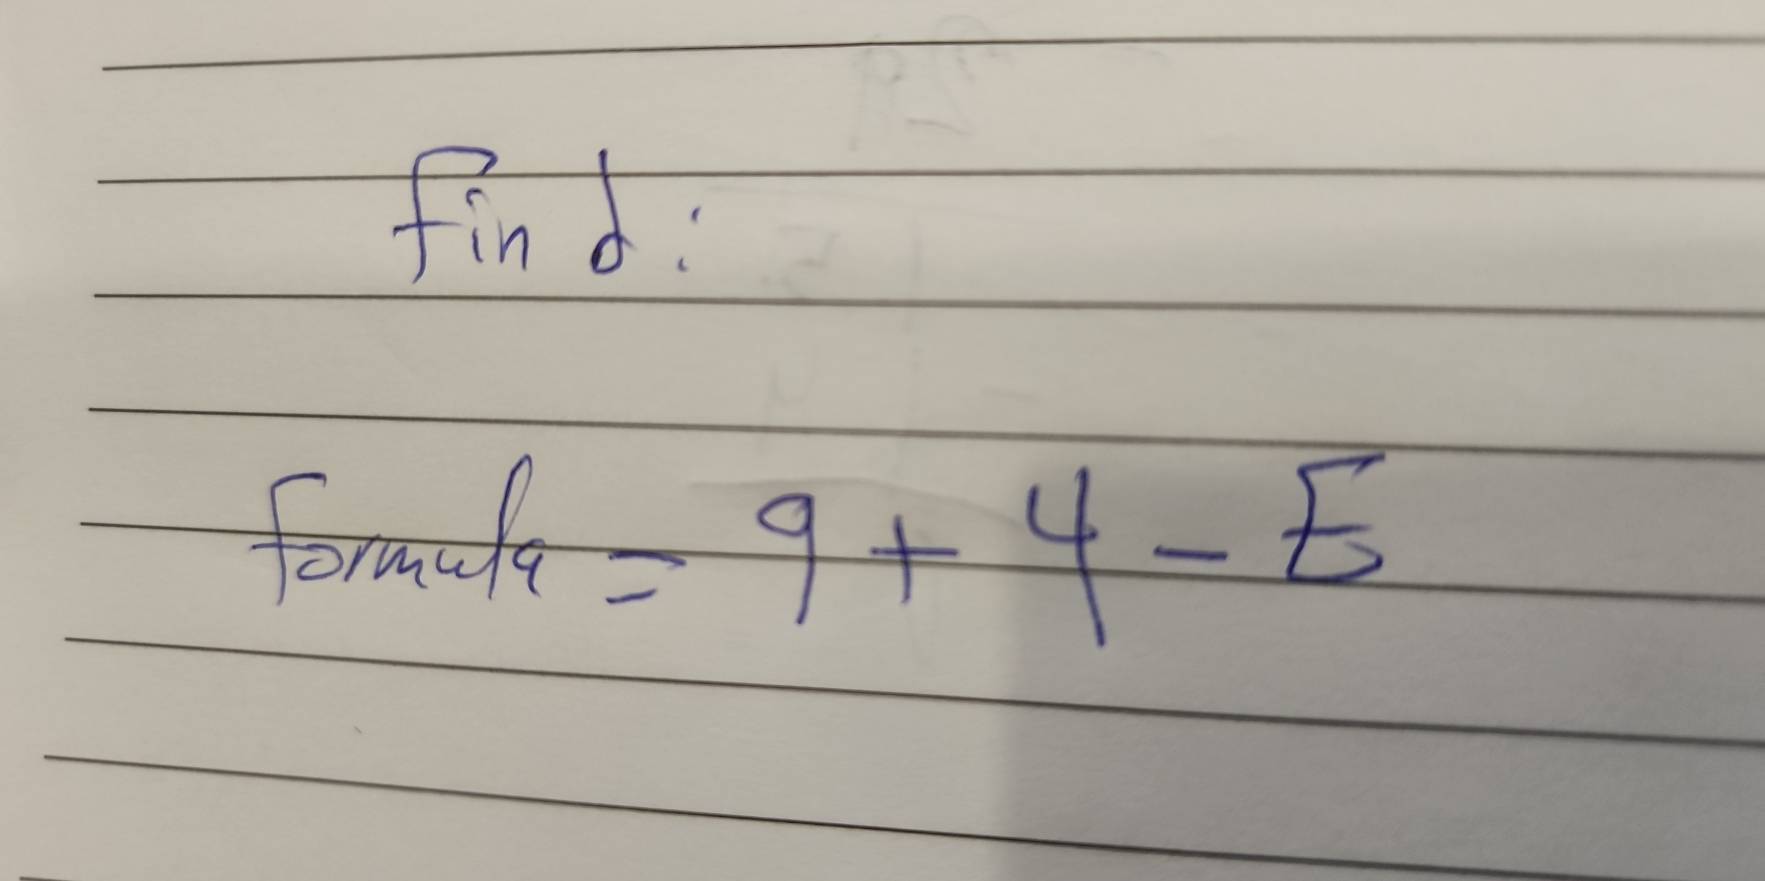 find:
formula = 9 + 4 - E